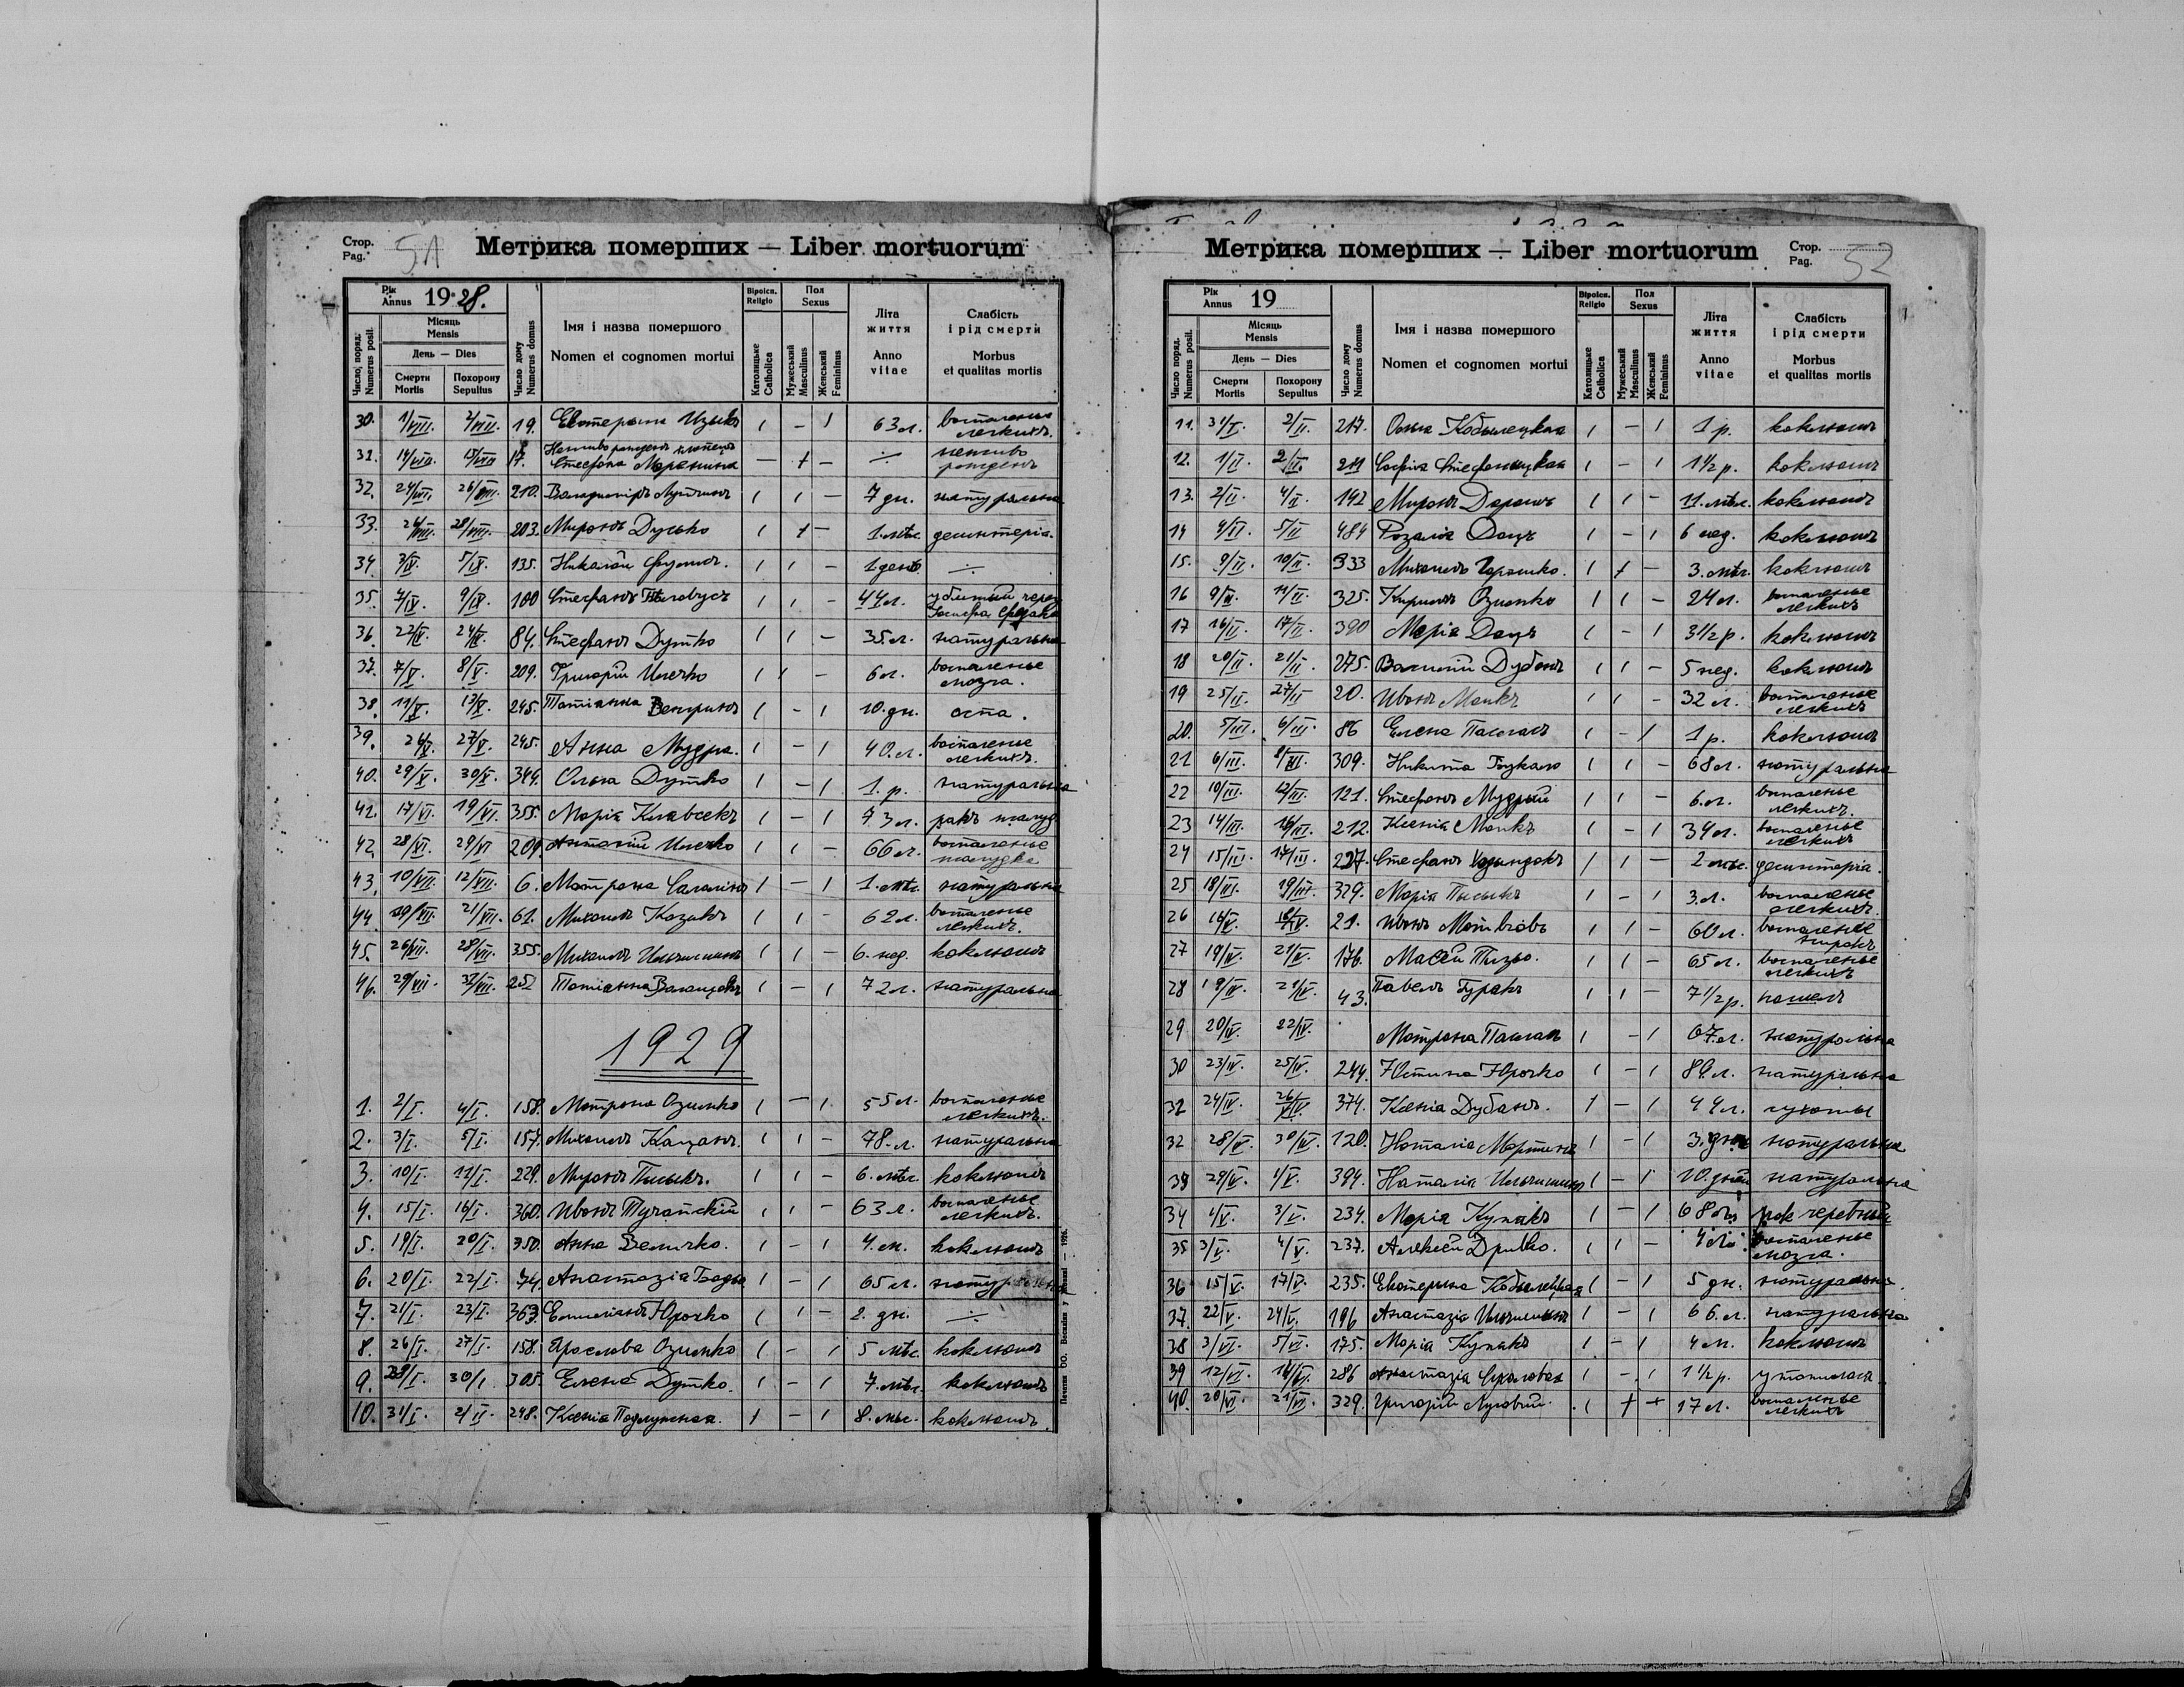 Стор.
Pag. 51
Метрика померших — Liber mortuorum
Рік
Annus 1928.
Число поряд.
Numerus posit.
Місяць
Mensis
День — Dies
Смерти
Mortis
Похорону
Sepultus
Число дому
Numerus domus
Імя і назва помершого
Nomen et cognomen mortui
Віроісп.
Religio
Католицьке
Catholica
Пол
Sexus
Мужеський
Masculinus
Женський
Femininus
Літа
життя
Anno
vitae
Слабість
і рід смерти
Morbus
et qualitas mortis
30. 1/VIII. 2/VIII. 19. Екатерина 1 – 1 63 л. воспаленье легкихъ.
31. 14/VIII. 15/VIII 17. Неживо рожденъ хлопецъ Стефана — + – ÷ неживо рожденъ
32. 24/VIII. 26/VIII. 210. 1 1 – 7 дн. натуральна
33. 26/VIII. 28/VIII. 203. Миронъ Дусько 1 + – 1. мѣс. десинтерія.
34. 3/IX. 5/IX. 135. Николай 1 1 – 1 день ÷
35. 7/IX. 9/IX. 100 Стефанъ Бѣловусъ 1 1 – 44 л. убитый через
36. 22/IX. 24/IX. 84. Стефанъ Дутко 1 1 – 35 л. натуральна
37. 7/X. 8/X. 209. Григорій Илечко 1 1 – 6 л. воспаленье мозга.
38. 11/X. 13/X. 245. Татіанна Венгринъ 1 – 1 10. дн. оспа.
39. 26/X. 27/X. 245. Анна Мудра. 1 – 1 40. л. воспаленье легкихъ.
40. 29/X. 30/X. 344. Ольга Дутко 1 – 1 1. р. натуральна
41. 17/XI. 19/XI. 355. Марія Клавсекъ 1 – 1 73 л. ракъ желуд
42. 28/XI. 29/XI 209. Антоній Илечко 1 1 – 66 л. воспаленье желудка
43. 10/XII. 12/XII. 6. Матрона 1 – 1 1. мѣс. натуральна
44. 21/XII. 61. Михаилъ Козакъ 1 1 – 62 л. воспаленье легкихъ.
45. 26/XII. 28/XII. 355. Михаилъ Ильчишинъ 1 1 – 6. нед. коклюшъ
46. 29/XII. 31/XII. 252 Татіанна 1 – 1 72 л. натуральна
1929
1. 2/I. 4/I. 158. Матрона Озимко 1 – 1. 55 л. воспаленье легкихъ.
2. 3/I. 5/I. 157. Михаилъ Кацанъ. 1 1 – 78. л. натуральна
3. 10/I. 11/I. 229. Миронъ Письнкъ. 1 1 – 6. мѣс. коклюшъ
4. 15/I. 16/I. 360. Иванъ Тучапскій 1 1 – 63 л. воспаленье легкихъ.
5. 19/I. 20/I. 350. Анна Величко. 1 – 1 4. м. коклюшъ
6. 20/I. 22/I. 74. Анастазія 1 – 1 65 л. натуральна
7. 21/I. 23/I. 363. Емиліанъ Юрочко 1 1 – 2. дн. ÷
8. 26/I. 27/I. 158. Ярослава Озимко 1 – 1 5 мѣс. коклюшъ
9. 28/I. 30/I 305. Елена Дутко. 1 – 1 7. мѣс. коклюшъ
10. 31/I. 2/II. 248. Ксенія Подлужная. 1 – 1 8. мѣс. коклюшъ.
Метрика померших — Liber mortuorum
Стор.
Pag. 52
Рік
Annus 19
Число поряд.
Numerus posit.
Місяць
Mensis
День — Dies
Смерти
Mortis
Похорону
Sepultus
Число дому
Numerus domus
Імя і назва помершого
Nomen et cognomen mortui
Віроісп.
Religio
Католицьке
Catholica
Пол
Sexus
Мужеський
Masculinus
Женський
Femininus
Літа
життя
Anno
vitae
Слабість
і рід смерти
Morbus
et qualitas mortis
11. 31/I. 2/II. 217. Ольга Кобылецкая 1 – 1 1 р. коклюшъ
12. 1/II. 2/II. 211 Софія Стефаницкая 1 – 1 1 1/2 р. коклюшъ
13. 2/II. 4/II. 142 Миронъ Дорошъ 1 1 – 11. мѣс. коклюшъ
14 4/II. 5/II 484 Розалія Доцъ 1 – 1 6 нед. коклюшъ
15. 9/II. 10/II. 333 Михаилъ Горошко. 1 + – 3. мѣс. коклюшъ
16 9/II. 11/II. 325. Кириллъ Озимко 1 1 – 24 л. воспаленье легкихъ
17 16/II. 17/II. 390 Марія Доцъ 1 – 1 3 1/2 р. коклюшъ
18 20/II 21/II. 275. Василій Дубанъ 1 1 – 5 нед. коклюшъ
19 25/II. 27/II 20. Иванъ Мошкъ 1 1 – 32 л. воспаленье легкихъ
20. 5/III. 6/III. 86 Елена Паславъ 1 – 1 1 р. коклюшъ
21 6/III. 8/III. 309. Никита 1 1 – 68 л. натуральна
22 10/III. 12/III. 121. Стефанъ Мудрый 1 1 – 6. л. воспаленье легкихъ.
23 14/III. 16/III. 212. Ксенія Мошкъ 1 – 1 34 л. воспаленье легкихъ
24 15/III. 17/III. 227. Стефанъ 1 1 – 2 мѣс. десинтерія.
25 18/III. 19/III. 329. Марія Письнкъ 1 – 1 3. л. воспаленье легкихъ.
26 21. Иванъ Матвіовъ 1 1 – 60 л. воспаленье
27 19/IV. 21/IV. 176. 1 1 – 65 л. воспаленье легкихъ
28 19/IV. 21/IV. 43. Павелъ Буракъ 1 1 – 7 1/2 р. кашель
29. 20/IV. 22/IV. Матрона Паславъ 1 – 1 67. л. натуральна
30 23/IV. 25/IV. 244. Юстина Юрочко 1 – 1 80. л. натуральна
31 24/IV. 26/IV. 374. Ксенія Дубанъ. 1 – 1 44 л. сухоты
32 28/IV. 30/IV. 120. Наталія 1 – 1 3. дни натуральна
33 29/IV. 1/V. 394. Наталія Ильчишинъ 1 – 1 10. дней натуральна
34 1/V. 3/V. 234. Марія Кунакъ 1 – 1 68 л. рак
35 3/V. 4/V. 237. Алексій Дривко. 1 1 – 4 воспаленье мозга.
36 15/V. 17/V. 235. Екатерина Кобылецкая 1 – 1 5 дн. натуральна
37. 22/V. 24/V. 196 Анастазія Ильчишинъ 1 – 1 66. л. натуральна
38 3/VI. 5/VI. 175. Марія Кунакъ 1 – 1 4 м. коклюшъ
39 12/VI. 14/VI. 286 Анастазія 1 – 1 1 1/2 р. утопилась
40. 20/VI. 21/VI. 329. Григорій Луговый. 1 + + 17 л. воспаленье легкихъ